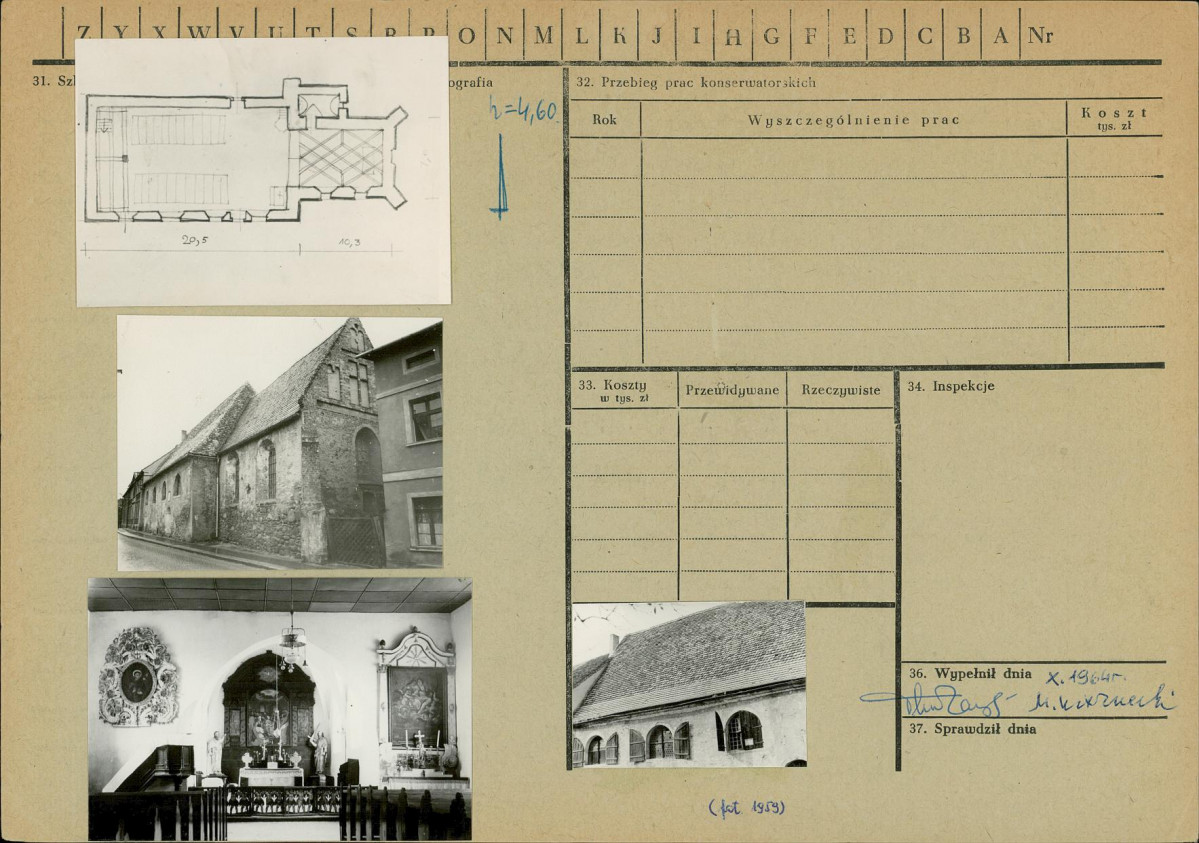 Z Y X W V U T S R P O N M L K J I H G F E D C B A Nr
31. Szk
ografia
h=4,60
20,5
10,3
32. Przebieg prac konserwatorskich
Rok
Wyszczególnienie prac
Koszt
tys. zł
33. Koszty
w tys. zł
Przewidywane
Rzeczywiste
34. Inspekcje
36. Wypełnił dnia X. 1964r.
37. Sprawdził dnia
(fot. 1959)